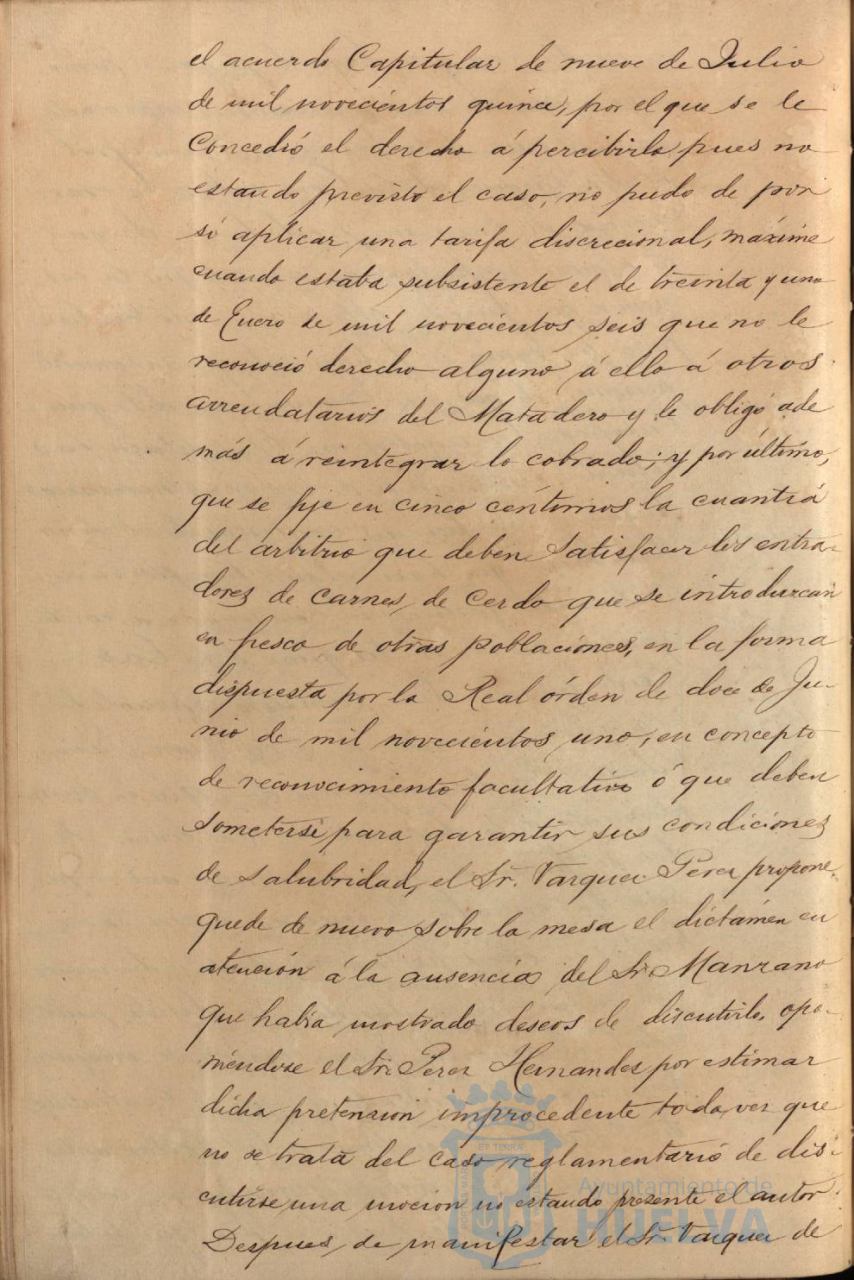 el acuerdo Capitular de nueve de Julio
de mil novecientos quince, por el que se le
concedió el derecho á percibirlo pues no
estando previsto el caso, no pudo de por
sí aplicar una tarifa discrecional, máxime
cuando estaba subsistente el de treinta y uno
de Enero de mil novecientos seis que no le
reconoció derecho alguno á ello á otros
arrendatarios del Matadero y le obligó ade
más á reintegrar lo cobrado; y por último,
que se fije en cinco céntimos la cuantía
del arbitrio que deben satisfacer los entra-
dores de carnes de Cerdo que se introduzcan
en fresco de otras poblaciones, en la forma
dispuesta por la Real órden de doce de Ju-
nio de mil novecientos uno, en concepto
de reconocimiento facultativo ó que deben
someterse para garantir sus condiciones
de salubridad, el Sr. Vazquez Pérez propone
quede de nuevo sobre la mesa el dictámen en
atención á la ausencia del Sr. Manzano
que había mostrado deseos de discutirlo, opo-
niéndose el Sr. Perez Hernandez por estimar
dicha pretension improcedente toda vez que
no se trata del caso reglamentario de dis-
cutirse una mocion no estando presente el autor.
Despues de manifestar el Sr. Vazquez de
Ayuntamiento de
HUELVA